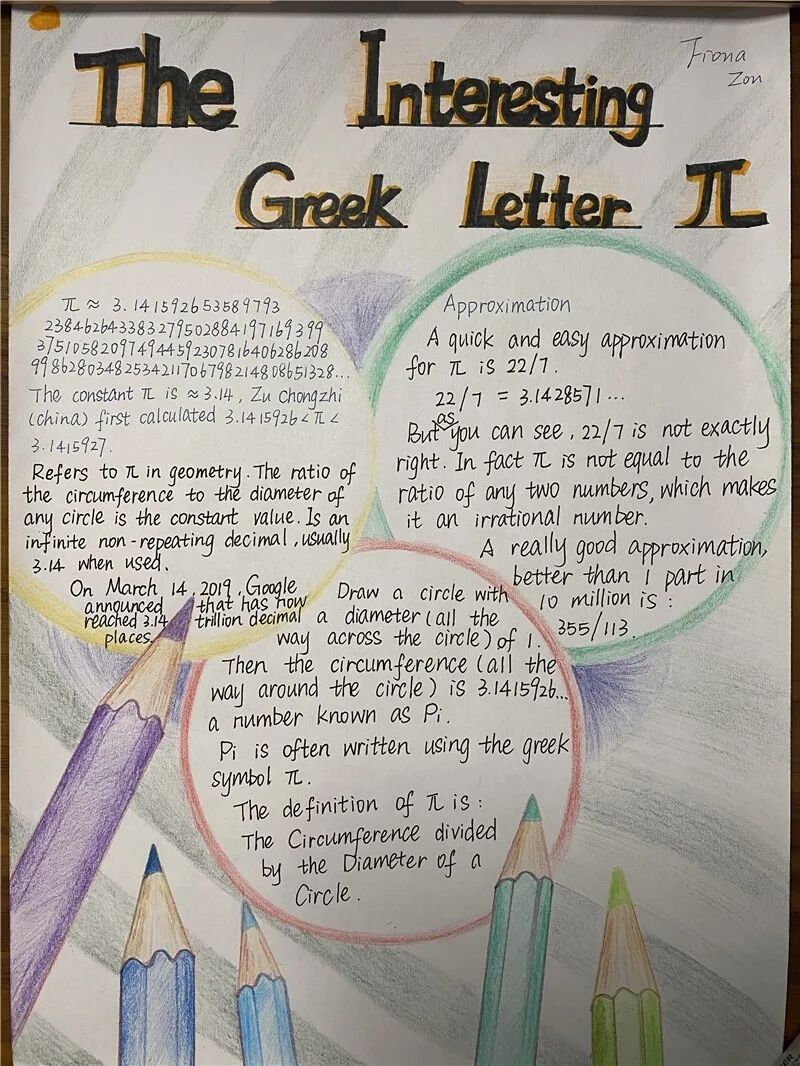 The Interesting
Greek Letter π
Fiona
Zou
π ≈ 3.141592653589793
238462643383279502884197169399
375105820974944592307816406286208
99862803482534211706798214808651328...
The constant π is ≈ 3.14, Zu Chongzhi
(china) first calculated 3.1415926 < π <
3.1415927.
Refers to π in geometry. The ratio of
the circumference to the diameter of
any circle is the constant value. Is an
infinite non-repeating decimal, usually
3.14 when used.
On March 14, 2019, Google
announced that has now
reached 3.14 trillion decimal
places.
Approximation
A quick and easy approximation
for π is 22/7.
22/7 = 3.1428571...
But as you can see, 22/7 is not exactly
right. In fact π is not equal to the
ratio of any two numbers, which makes
it an irrational number.
A really good approximation,
better than 1 part in
10 million is:
355/113.
Draw a circle with
a diameter (all the
way across the circle) of 1.
Then the circumference (all the
way around the circle) is 3.1415926...
a number known as Pi.
Pi is often written using the greek
symbol π.
The definition of π is:
The Circumference divided
by the Diameter of a
Circle.